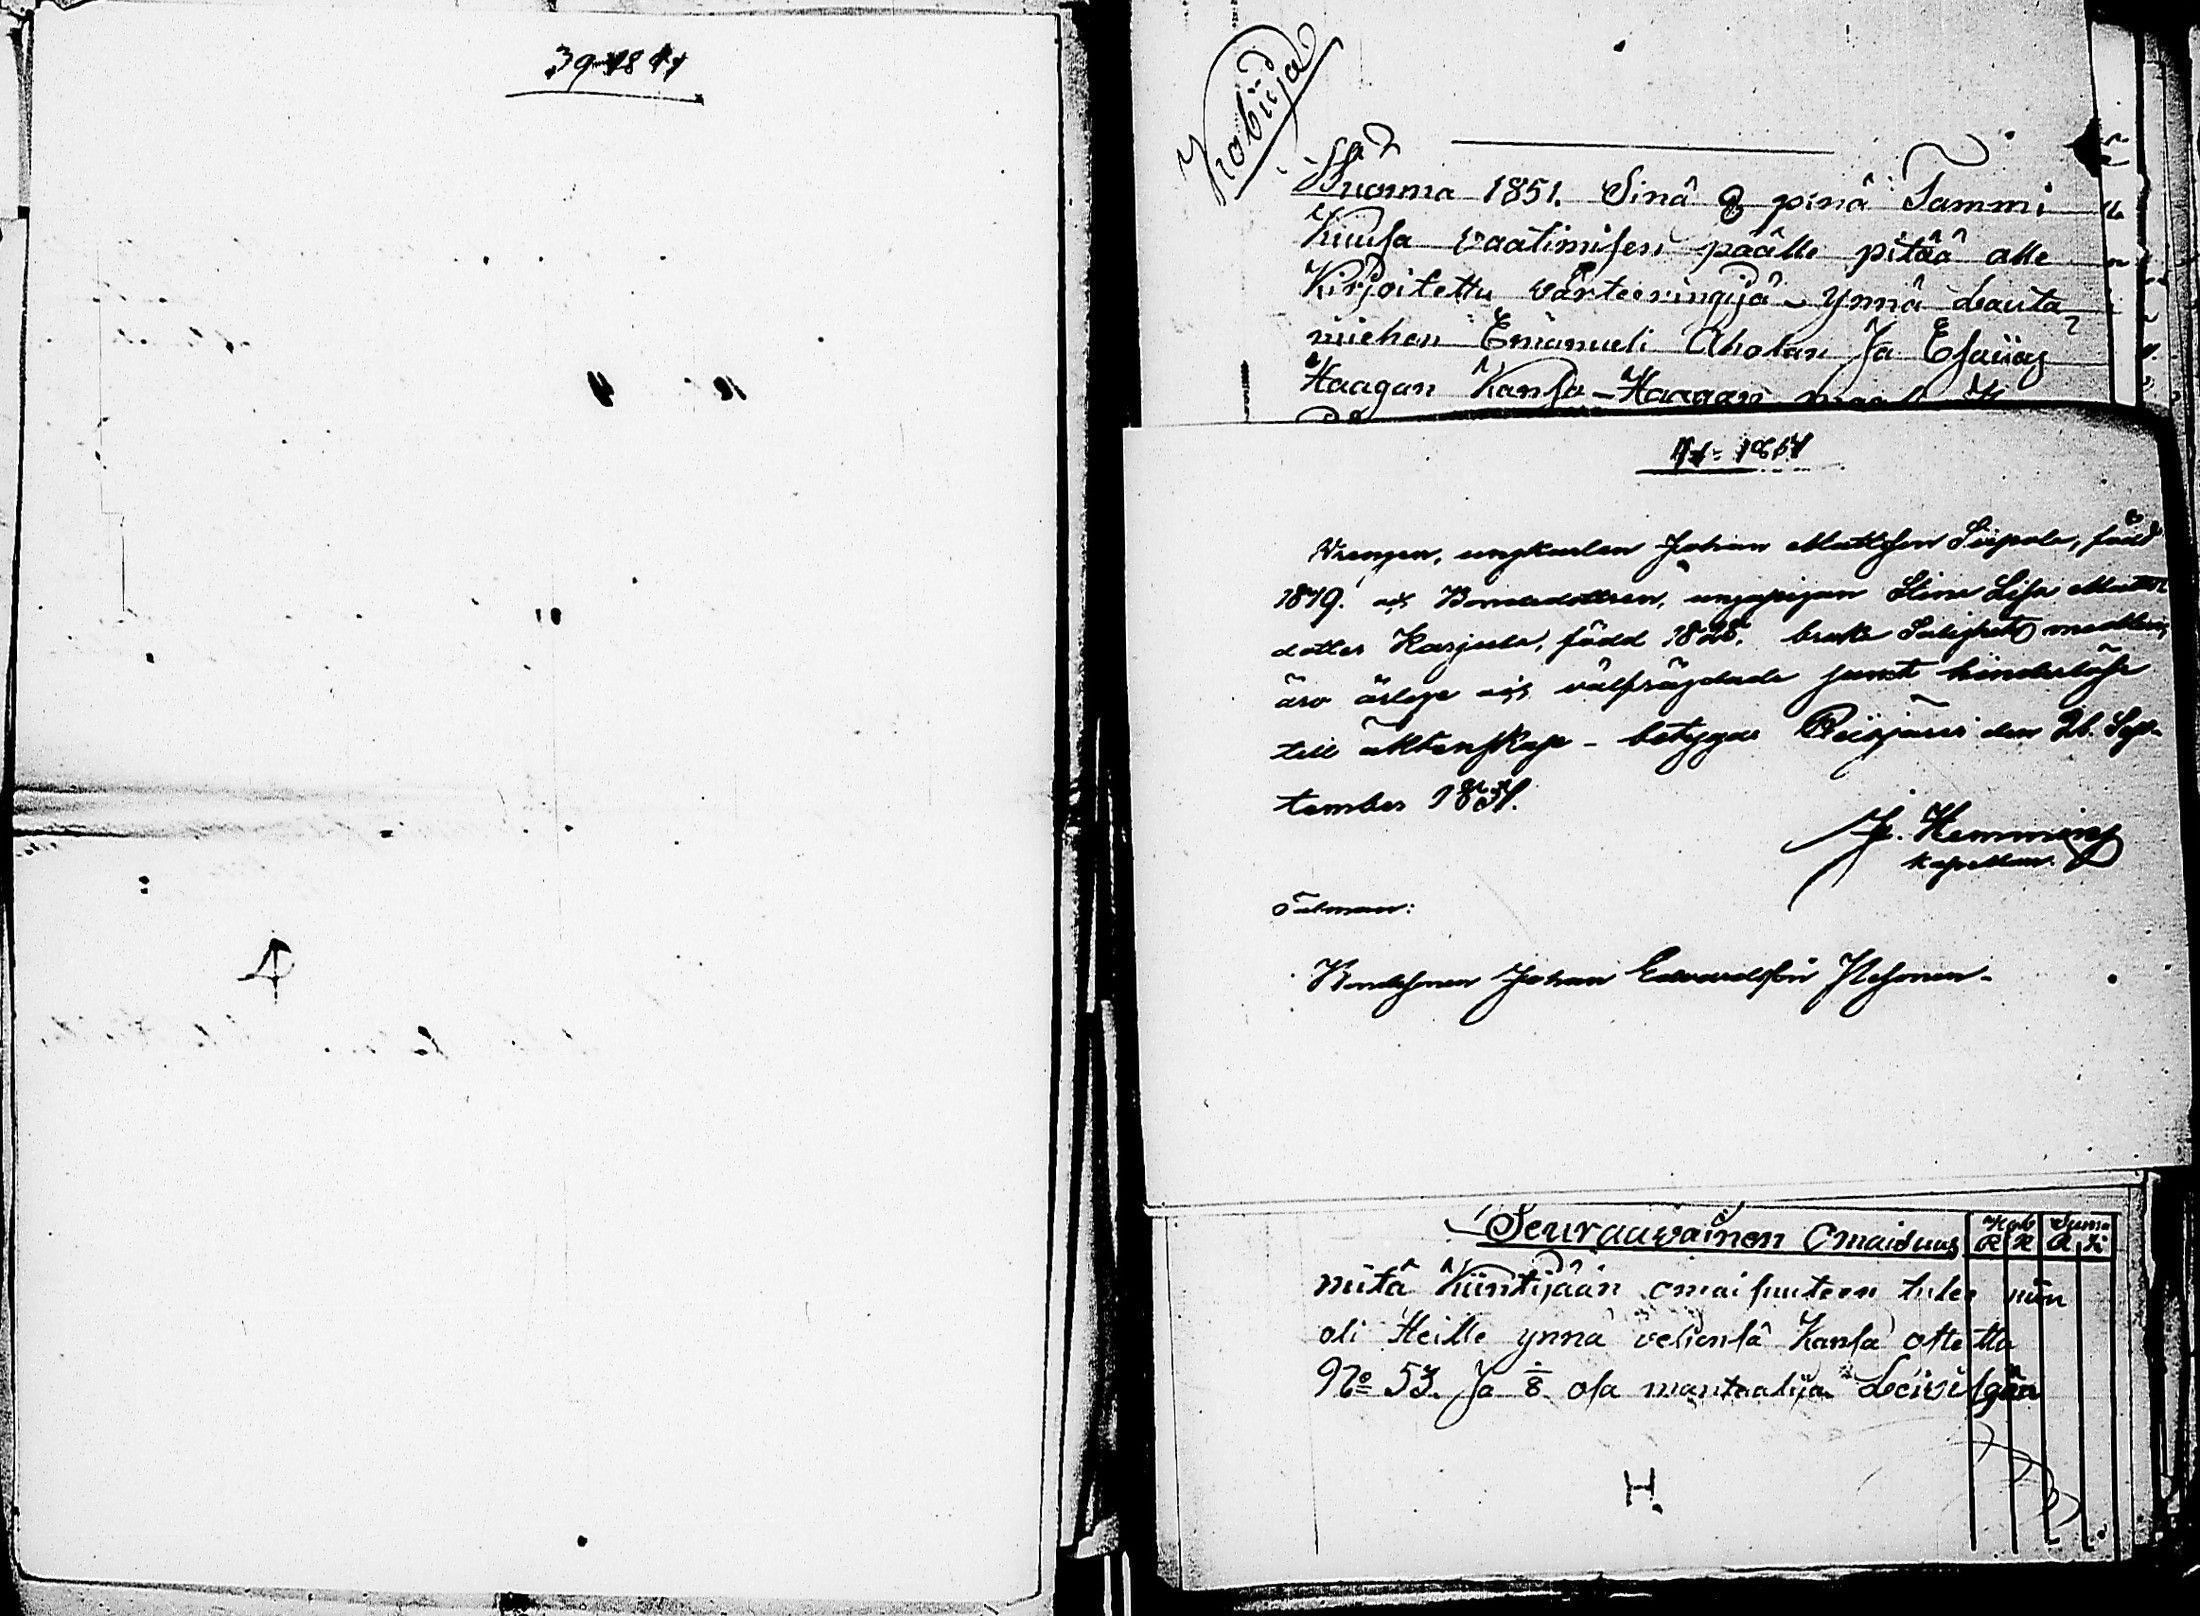 39-1841
Kobiija
Wuonna 1851. Sinä 8 pänä Tammi
Kuusa vaatimisen päälle pitää alle
Kirjoitettu värteeringijä ynnä Lauta
miehen Emanueli Aholan Ja Esaiias
Haagan Kansa - Haagan
41-1851
Drengen, ungkarlen Johan Mattsson Seppälä, född
1819. och Bondedottren, ungpigan Stina Lisa Matts
dotter Karjula, född 1828. bruka Salighets medlen,
äro ärlige och välfrägdade samt hinderlöse
till äktenskap - betygar Reisjärvi den 26. Sep-
tember 1851.
J. Hemming
Kapellan.
Talman:
Bondesonen Johan Edvardsson
Seuraawainen Omaisuus
R K R K
mitä Kiintijään omaisuuteen tulee niin
oli Heille ynnä veliensä Kansa otettu
No 53. Ja 1/8 osa mantaalija
H.